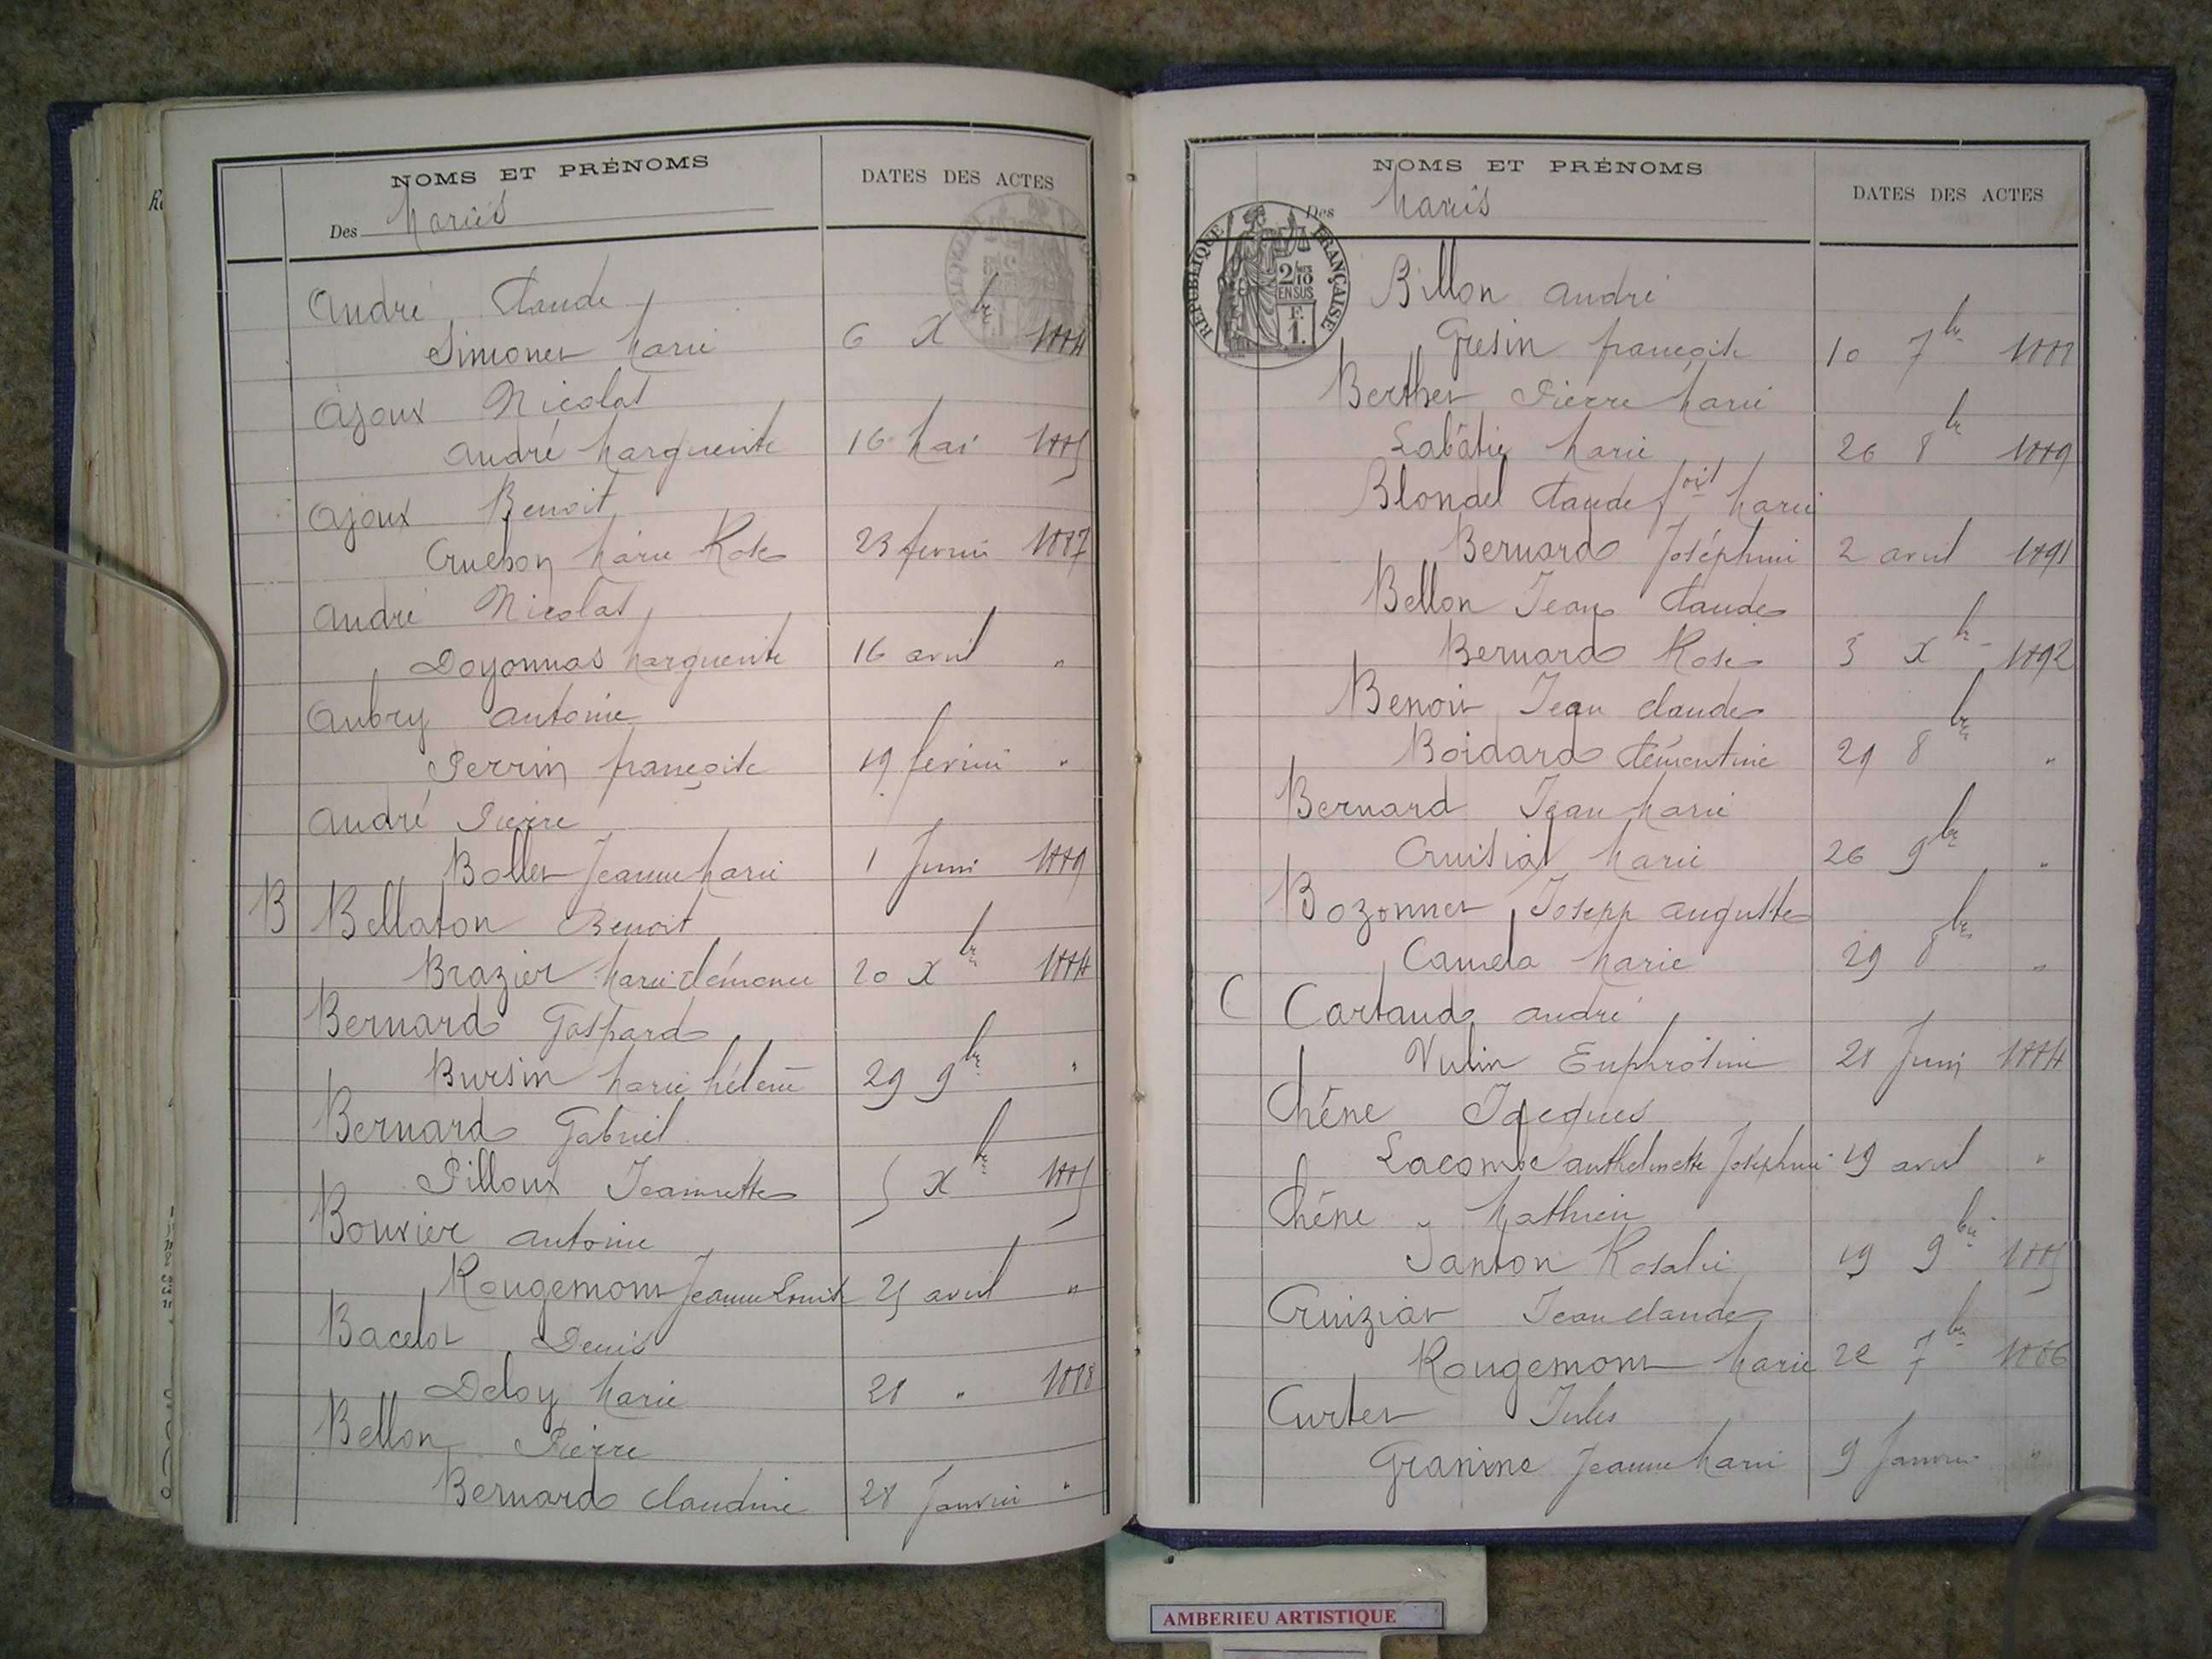 NOMS ET PRÉNOMS
Des Mariés
DATES DES ACTES
André Claude
Simonet Marie 6 Xbre 1884
Ajoux Nicolas
André Marguerite 16 Mai 1885
Ajoux Benoit
Cruchon Marie Rose 23 février 1887
André Nicolas
Doyonnas Marguerite 16 avril "
Aubry Antoine
Perrin françoise 19 février "
André Pierre
Bollet Jeanne Marie 1 Juin 1889
B Bellaton Benoit
Brazier Marie Clémence 20 Xbre 1884
Bernard Gaspard
Bursin Marie hélène 29 9bre "
Bernard Gabriel
Pilloux Jeannette 5 Xbre 1885
Bouvier Antoine
Rougemont Jeanne Louise 25 avril "
Bacelot Denis
Deloy Marie 28 " 1888
Bellon Pierre
Bernard Claudine 28 Janvier "
NOMS ET PRÉNOMS
Des Mariés
DATES DES ACTES
RÉPUBLIQUE FRANÇAISE
2/10 EN SUS
F. 1.
Billon André
Gresin françoise 10 7bre
Berthet Pierre Marie
Labâtie Marie 26 8bre 1889
Blondel Claude fois Marie
Bernard Joséphine 2 avril 1891
Bellon Jean Claude
Bernard Rose 3 Xbre 1892
Benoit Jean Claude
Boidard Clémentine 29 8bre "
Bernard Jean Marie
Cruisiat Marie 26 9bre "
Bozonnet Joseph Auguste
Camela Marie 29 8bre "
C Cartaud André
Vulin Euphrosine 28 Juin 1884
Chêne Jacques
Lacombe Anthelmette Joséphine 19 avril "
Chêne Mathieu
Janton Rosalie 19 9bre 1885
Cruiziat Jean Claude
Rougemont Marie 22 7bre 1886
Curtet Jules
Granine Jeanne Marie 9 Janvier "
AMBERIEU ARTISTIQUE